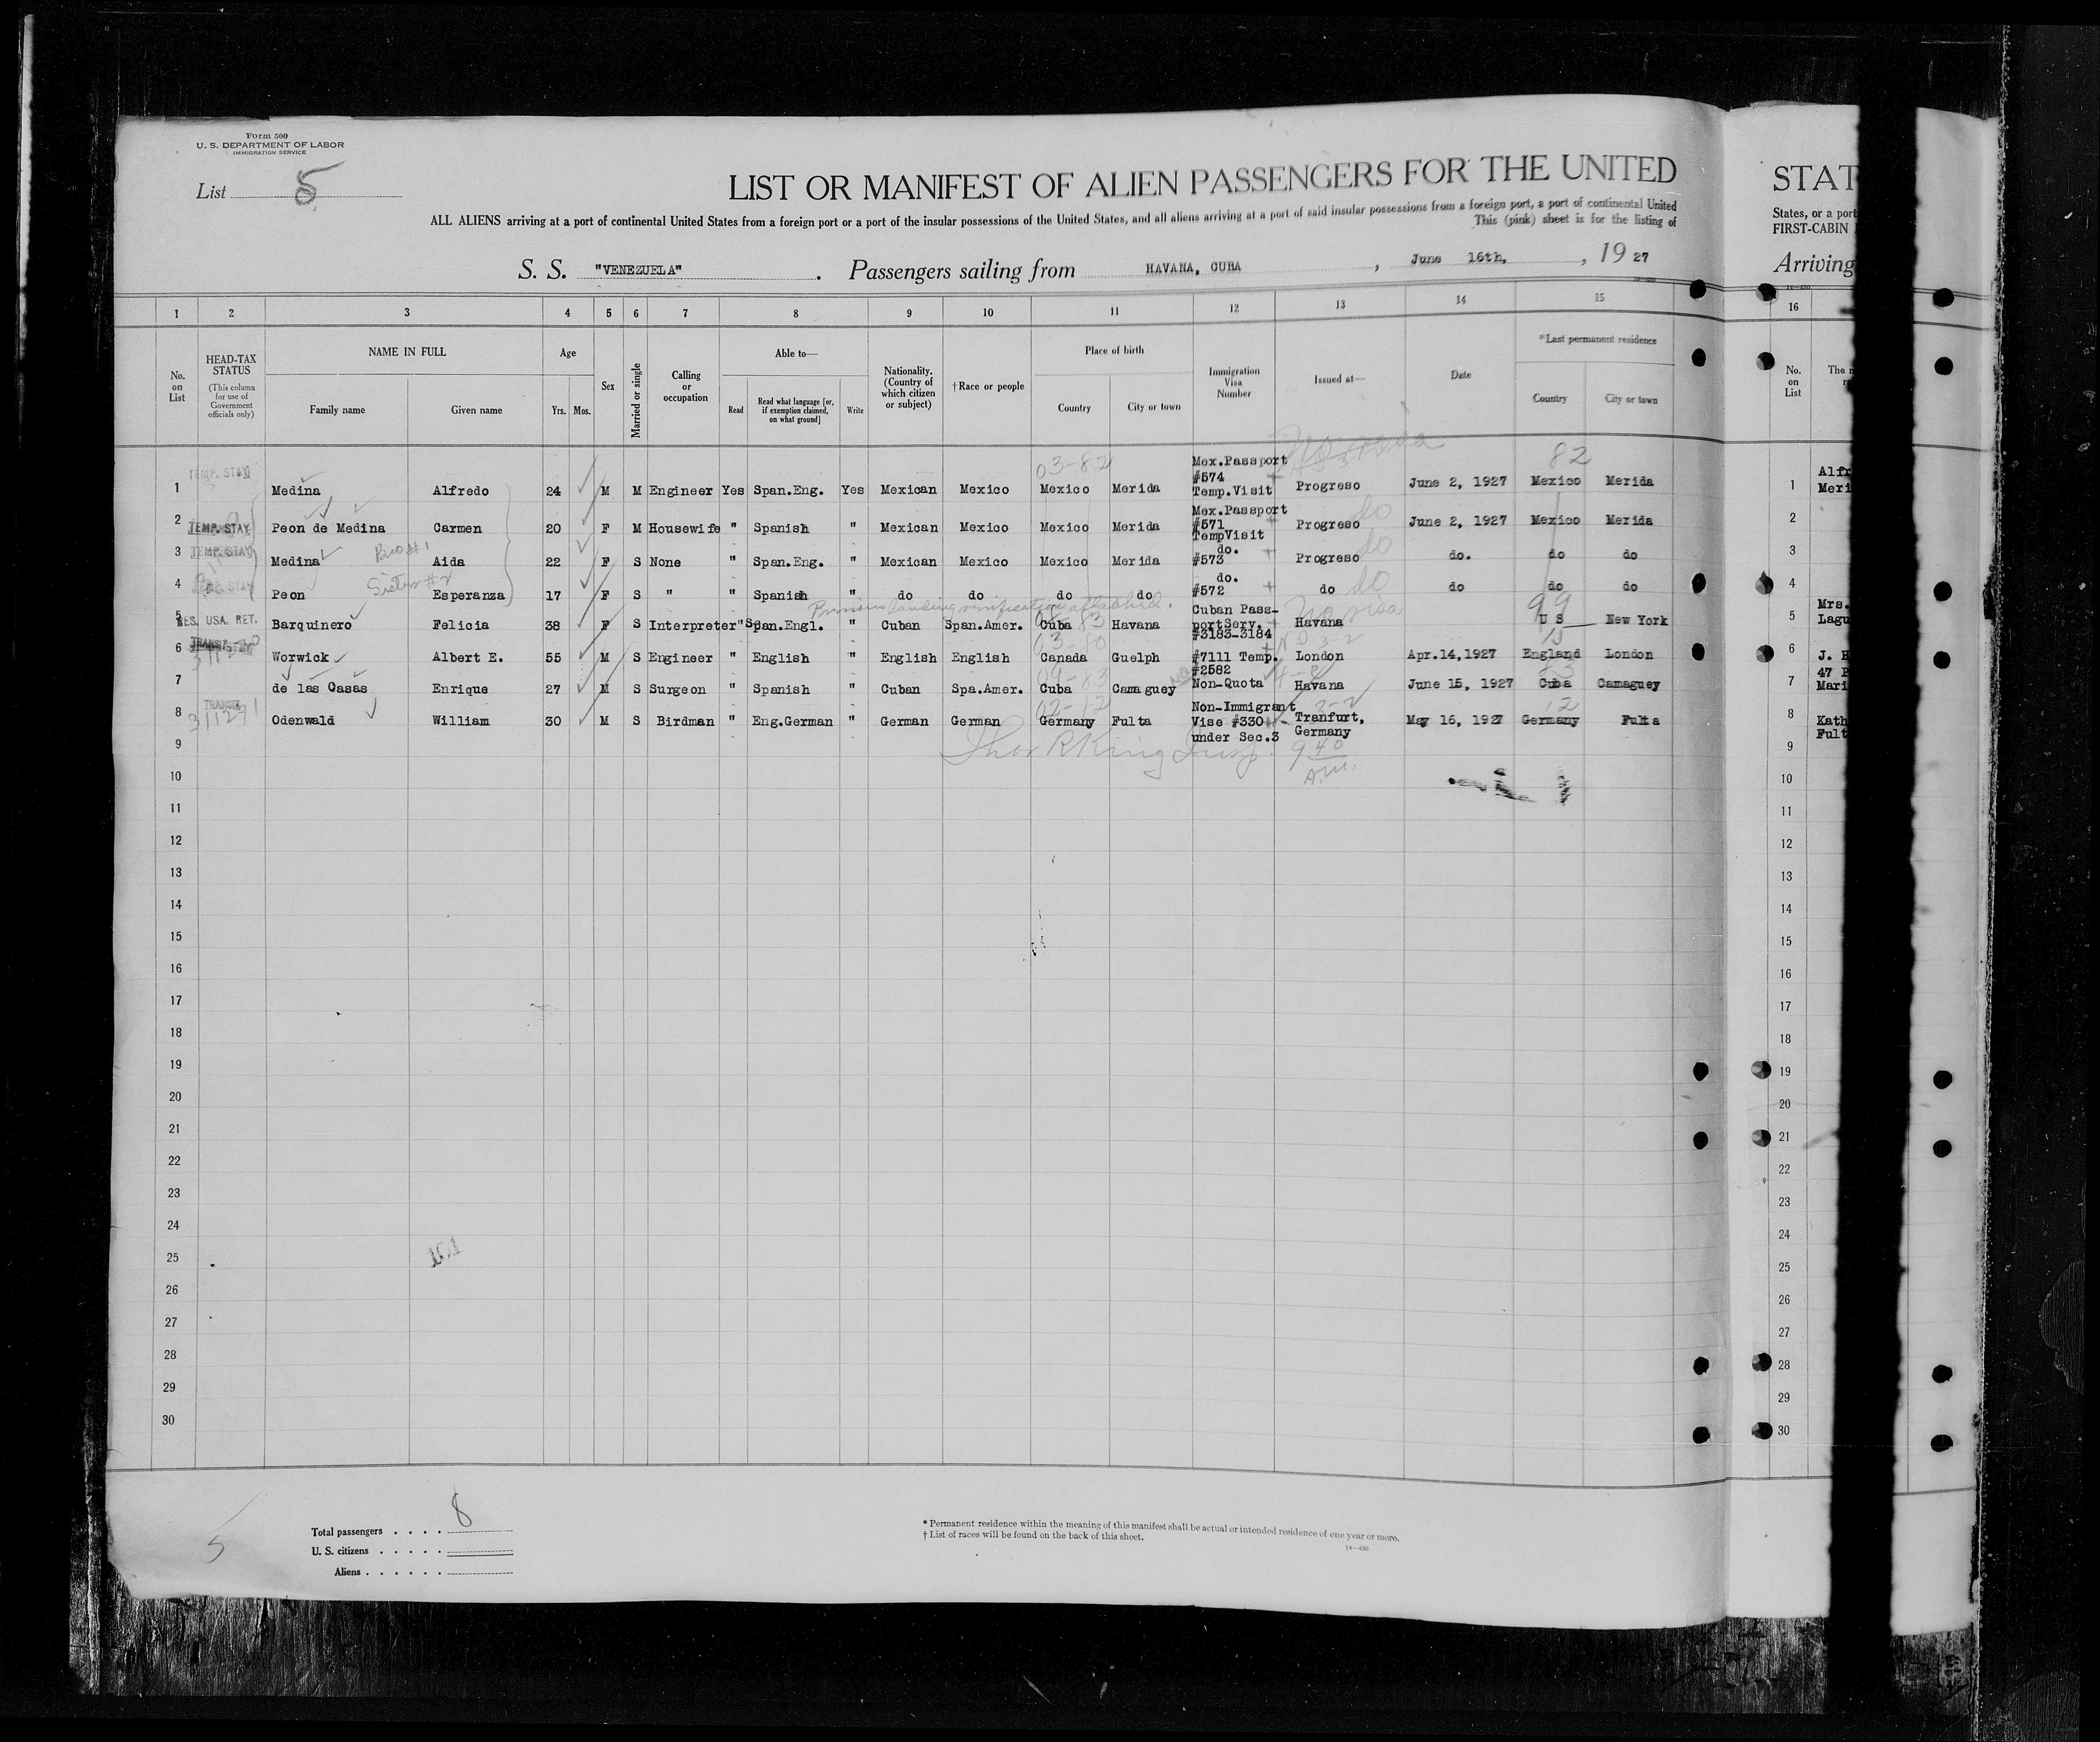 Form 500
U. S. DEPARTMENT OF LABOR
IMMIGRATION SERVICE
List 5
LIST OR MANIFEST OF ALIEN PASSENGERS FOR THE UNITED
ALL ALIENS arriving at a port of continental United States from a foreign port or a port of the insular possessions of the United States, and all aliens arriving at a port of said insular possessions from a foreign port, a port of continental United
This (pink) sheet is for the listing of
S. S. "VENEZUELA". Passengers sailing from HAVANA, CUBA, June 16th, , 19 27
1 2 3 4 5 6 7 8 9 10 11 12 13 14 15
No. on List
HEAD-TAX STATUS (This column for use of Government officials only)
NAME IN FULL
Family name Given name
Age
Yrs. Mos.
Sex
Married or single
Calling or occupation
Able to—
Read Read what language [or, if exemption claimed, on what ground] Write
Nationality. (Country of which citizen or subject)
†Race or people
Place of birth
Country City or town
Immigration Visa Number
Issued at—
Date
*Last permanent residence
Country City or town
03-82 82
1 TEMP. STAY Medina Alfredo 24 M M Engineer Yes Span.Eng. Yes Mexican Mexico Mexico Merida Mex.Passport #574 Temp.Visit Progreso June 2, 1927 Mexico Merida
2 TEMP. STAY Peon de Medina Carmen 20 F M Housewife " Spanish " Mexican Mexico Mexico Merida Mex.Passport #571 TempVisit Progreso do June 2, 1927 Mexico Merida
3 TEMP. STAY Medina Aida 22 F S None " Span.Eng. " Mexican Mexico Mexico Merida do. #573 Progreso do do. do do
4 TEMP. STAY Peon Sister #2 Esperanza 17 F S " " Spanish " do do do do do. #572 do do do do do
5 RES. USA. RET. Barquinero Felicia 38 F S Interpreter " Span.Engl. " Cuban Span.Amer. Cuba Havana Cuban Pass-portServ. #3183-3184 Havana No visa 99 U S New York
6 Worwick Albert E. 55 M S Engineer " English " English English Canada Guelph #7111 Temp. London Apr.14,1927 England London
7 de las Casas Enrique 27 M S Surgeon " Spanish " Cuban Spa.Amer. Cuba Camaguey #2582 Non-Quota Havana June 15, 1927 Cuba Camaguey
8 TRANSIT Odenwald William 30 M S Birdman " Eng.German " German German Germany Fulta Non-Immigrant Vise #330 under Sec.3 Tranfurt, Germany May 16, 1927 Germany Fulta
9 Thos R King Insp. 9 40 A.M.
10
11
12
13
14
15
16
17
18
19
20
21
22
23
24
25
26
27
28
29
30
Total passengers . . . . 8
U. S. citizens . . . . .
Aliens . . . . . .
5
* Permanent residence within the meaning of this manifest shall be actual or intended residence of one year or more.
† List of races will be found on the back of this sheet.
STAT
States, or a port
FIRST-CABIN
Arriving
16
No. on List
The
1 Alfr
Meri
2
3
4
5 Mrs.
Lagu
6 J. H
7 47 P
Mari
8 Kath
Fult
9
10
11
12
13
14
15
16
17
18
19
20
21
22
23
24
25
26
27
28
29
30